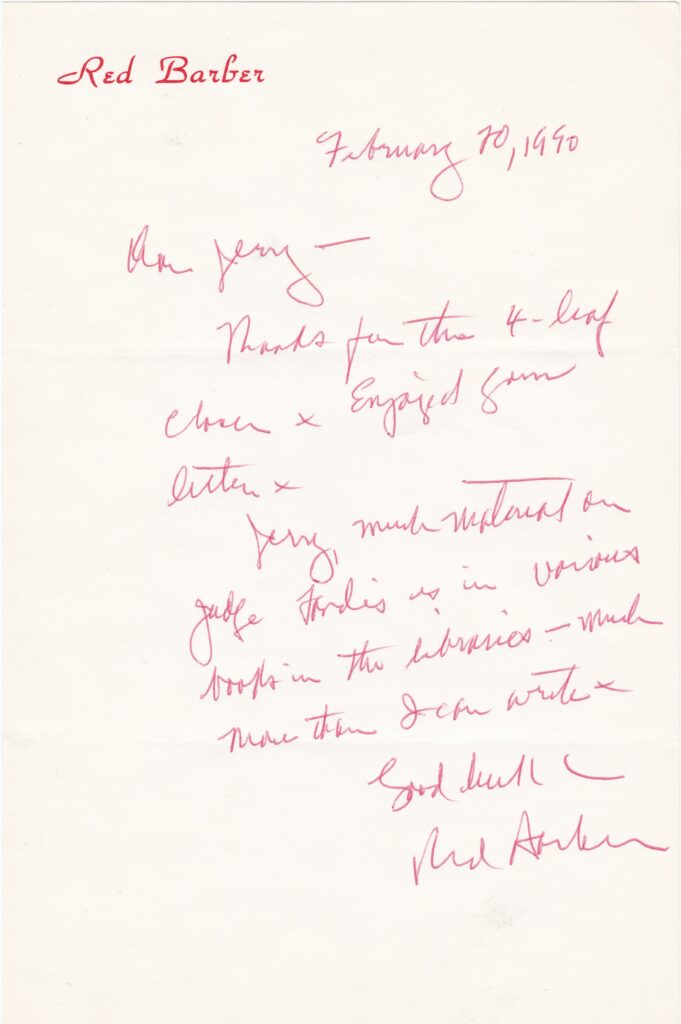 Red Barber
February 20, 1990
Dear Jerry —
Thanks for the 4-leaf
clover x Enjoyed your
letter x
Jerry, much material on
Judge Landis is in various
books in the libraries — much
more than I can write x
Good luck
Red Barber